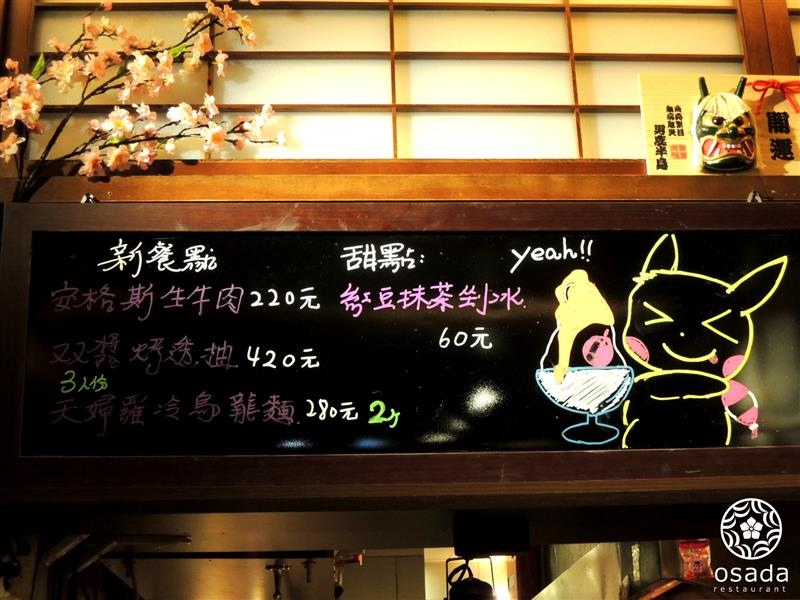 新餐點
安格斯生牛肉220元
双醬烤透抽 420元
3人份
天婦羅冷烏龍麵 280元 2人
甜點:
紅豆抹茶剉冰
60元
yeah!!
男鹿半島
開運
osada
restaurant